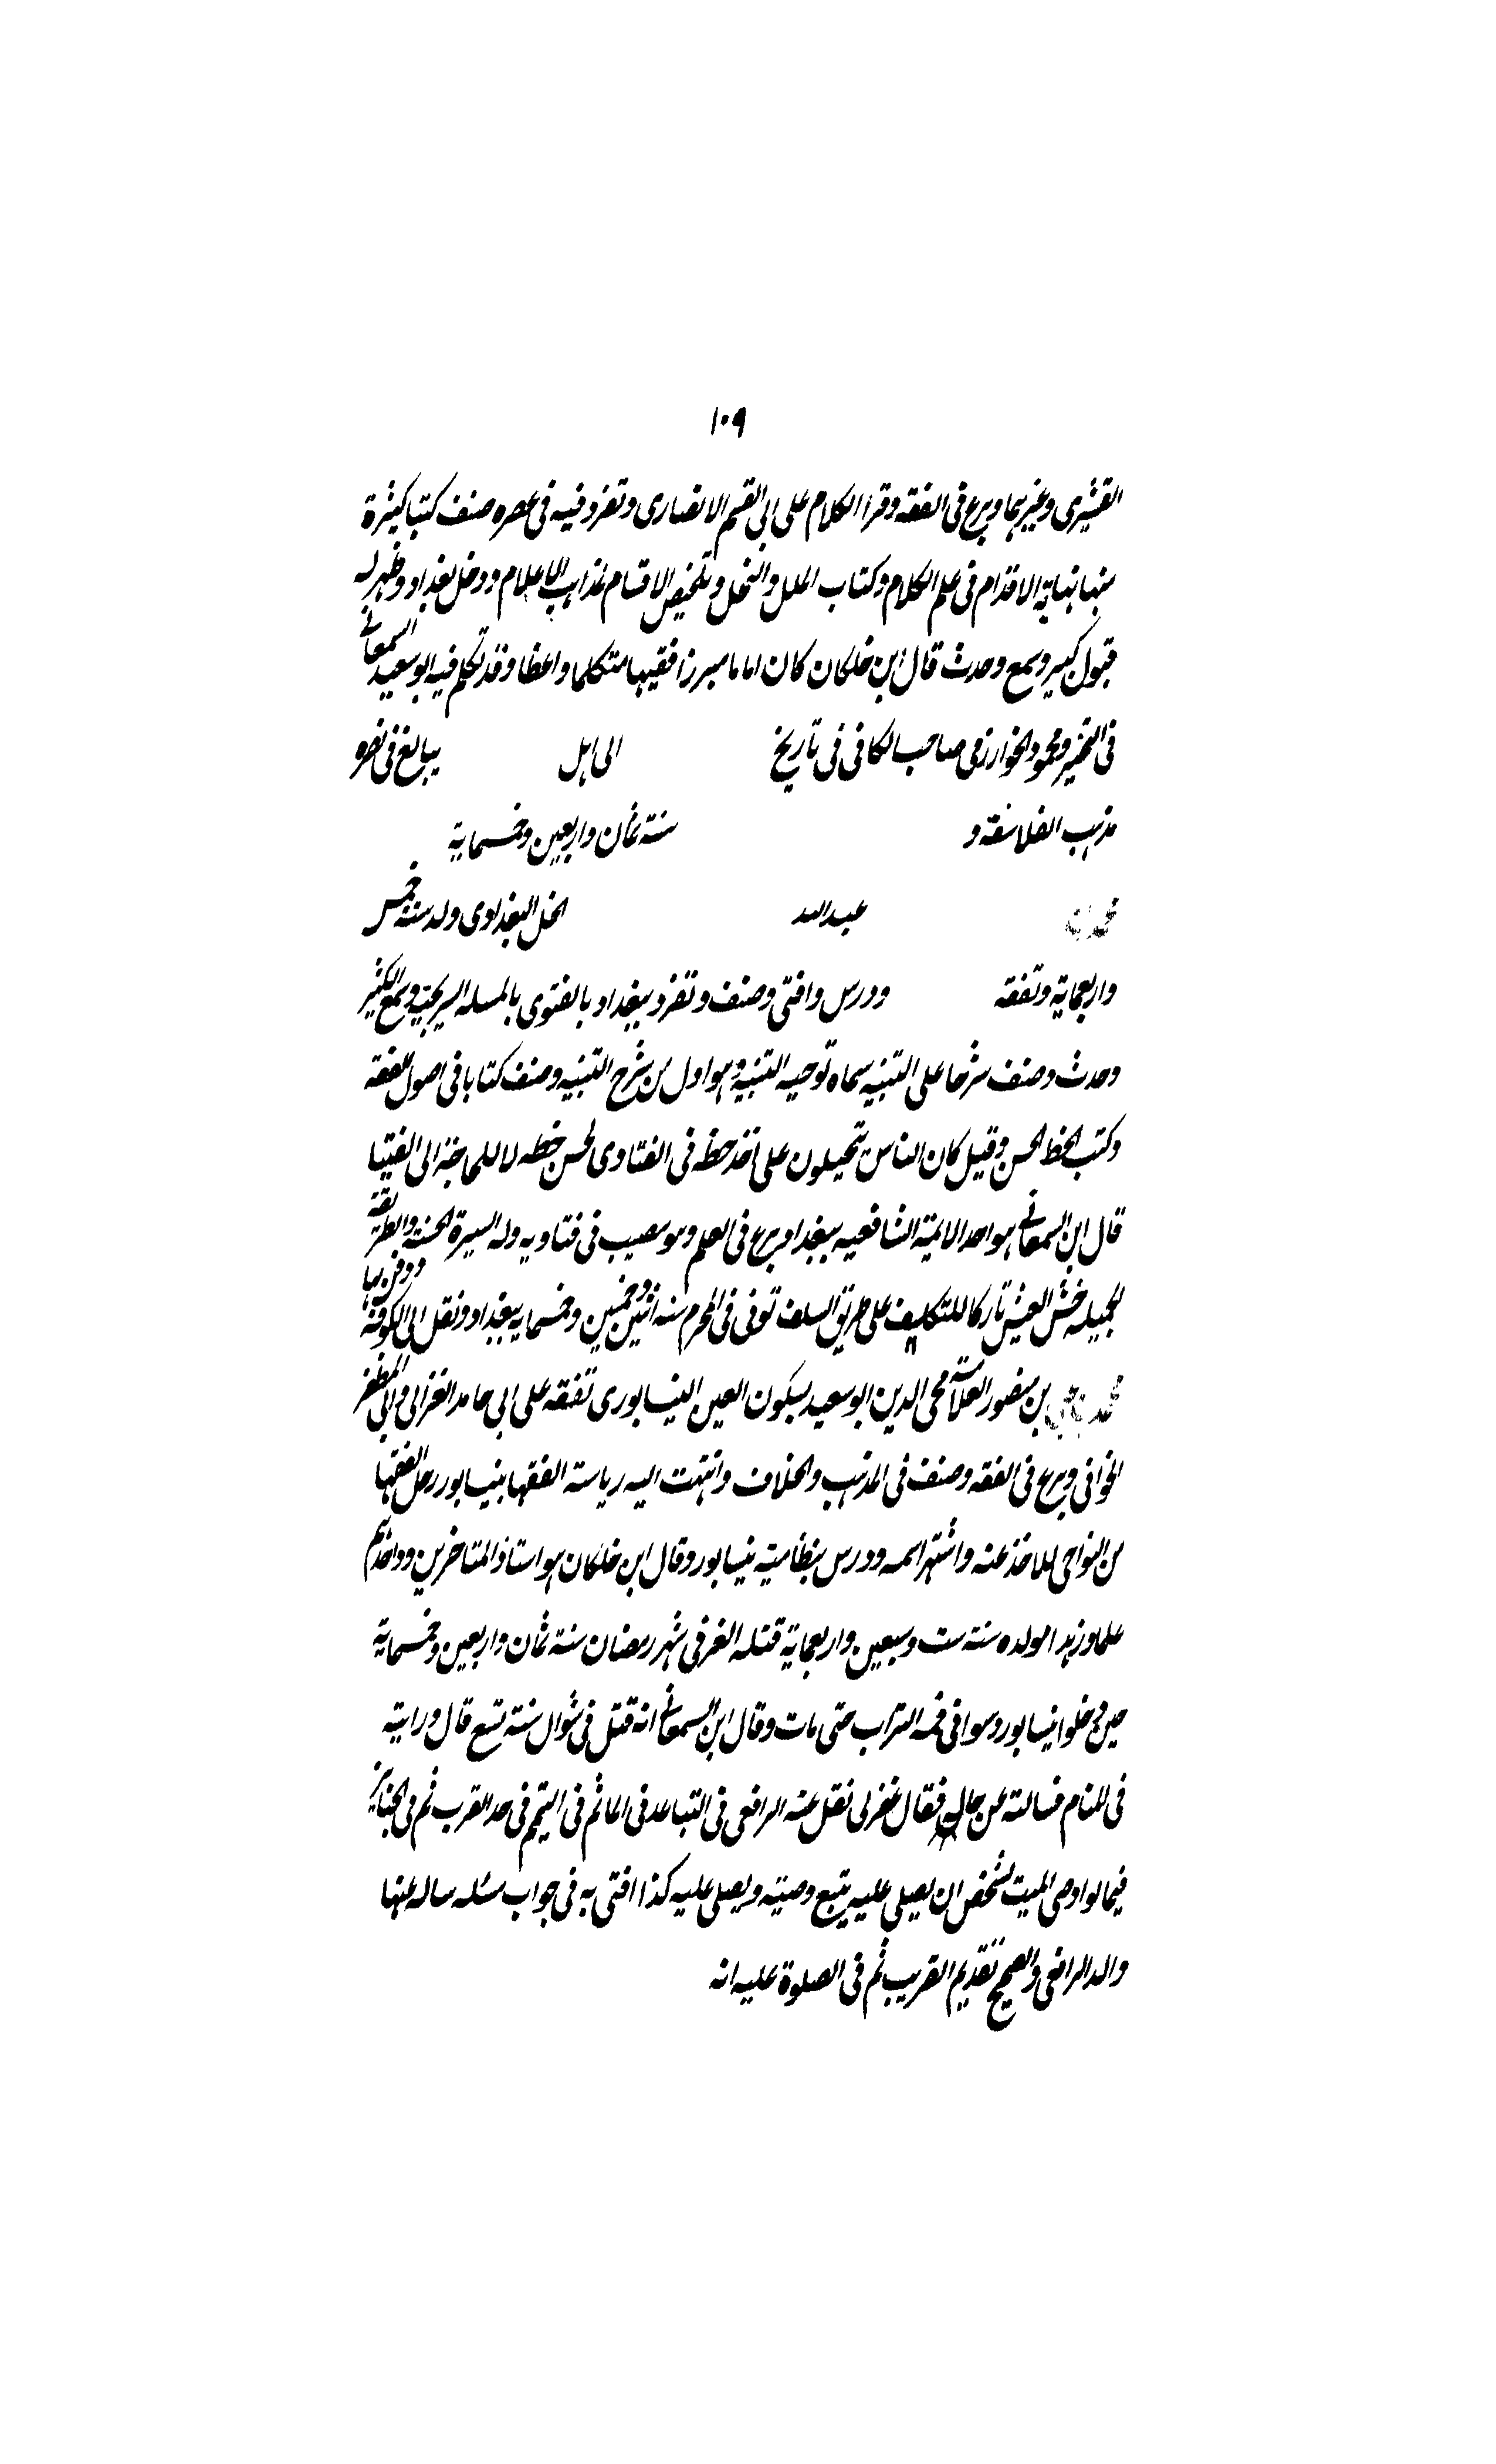 ١٠٩
القشيرى وغيرهما وبرع فى الفقه وقرا الكلام على ابى القسم الانصارى وتفرد فيه فى عصره صنف كتبا كثيرة
منها نهاية الاقدام فى علم الكلام وكتاب الملل والنحل وتلخيص الاقسام لمذاهب الاعلام ودخل بغداد وظهر له
قبول كبير وسمع وحدث قال ابن خلكان كان اماما مبرزا فقيها متكلما واعظا وقد تكلم فيه ابو سعيد السمعانى
فى التحبير ومحمود الخوارزمى صاحب الكافى فى تاريخ الى اهل يبالغ فى نصره
مذهب الفلاسفة و سنة ثمان واربعين وخمسماية
محمد بن عبد الله الخل البغدادى ولد سنة خمس
واربعماية وتفقه ودرس وافتى وصنف وتفرد ببغداد بالفتوى بالمسله السريجية وسمع الكثير
وحدث وصنف شرحا على التنبيه سماه توجيه التنبيه وهو اول من شرح التنبيه وصنف كتابا فى اصول الفقه
وكتب الخط الحسن وقيل كان الناس يتحيلون على اخذ خطه فى الفتاوى لحسن خطه لا للحاجة الى الفتيا
قال ابن السمعانى هو احد الائمة الشافعيه ببغداد برع فى العلم وهو مصيب فى فتاويه وله السيرة الحسنة والطريقة
الجميله خشن العيش تاركا للتكليف على طريق السلف توفى فى المحرم سنه اثنين وخمسين وخمسمايه ببغداد ونقل الى الكوفة ودفن بها
محمد بن يحيى بن منصور العلامة محى الدين ابو سعيد بسكون العين النيسابورى تفقه على ابى حامد الغزالى وابى المظفر
الخوافى وبرع فى الفقه وصنف فى المذهب والخلاف وانتهت اليه رياسته الفقها بنيسابور رحل الفقها
من النواحى للاخذ عنه واشتهر اسمه ودرس بنظامية نيسابور وقال ابن خلكان هو استاذ المتاخرين وواحدهم
علما وزهدا مولده سنة ست وسبعين واربعماية قتله الغز فى شهر رمضان سنة ثمان واربعين وخمسماية
حين دخلوا نيسابور دسوا فى فمه التراب حتى مات وقال ابن السمعانى انه قتل فى شوال سنة تسع قال ورايته
فى المنام فسالته عن حاله فقال غفر لى نقل عنه الرافعى فى التباعد فى الماثم فى التيمم فى حد القرب ثم فى الجنايز
فيما لو اوصى الميت لشخص ان يصلى عليه يتبع وصيته ويصلى عليه كذا افتى به فى جواب مسئله ساله عنها
والد الرافعى والصحيح تقديم القريب ثم فى الصلوة عليه انه